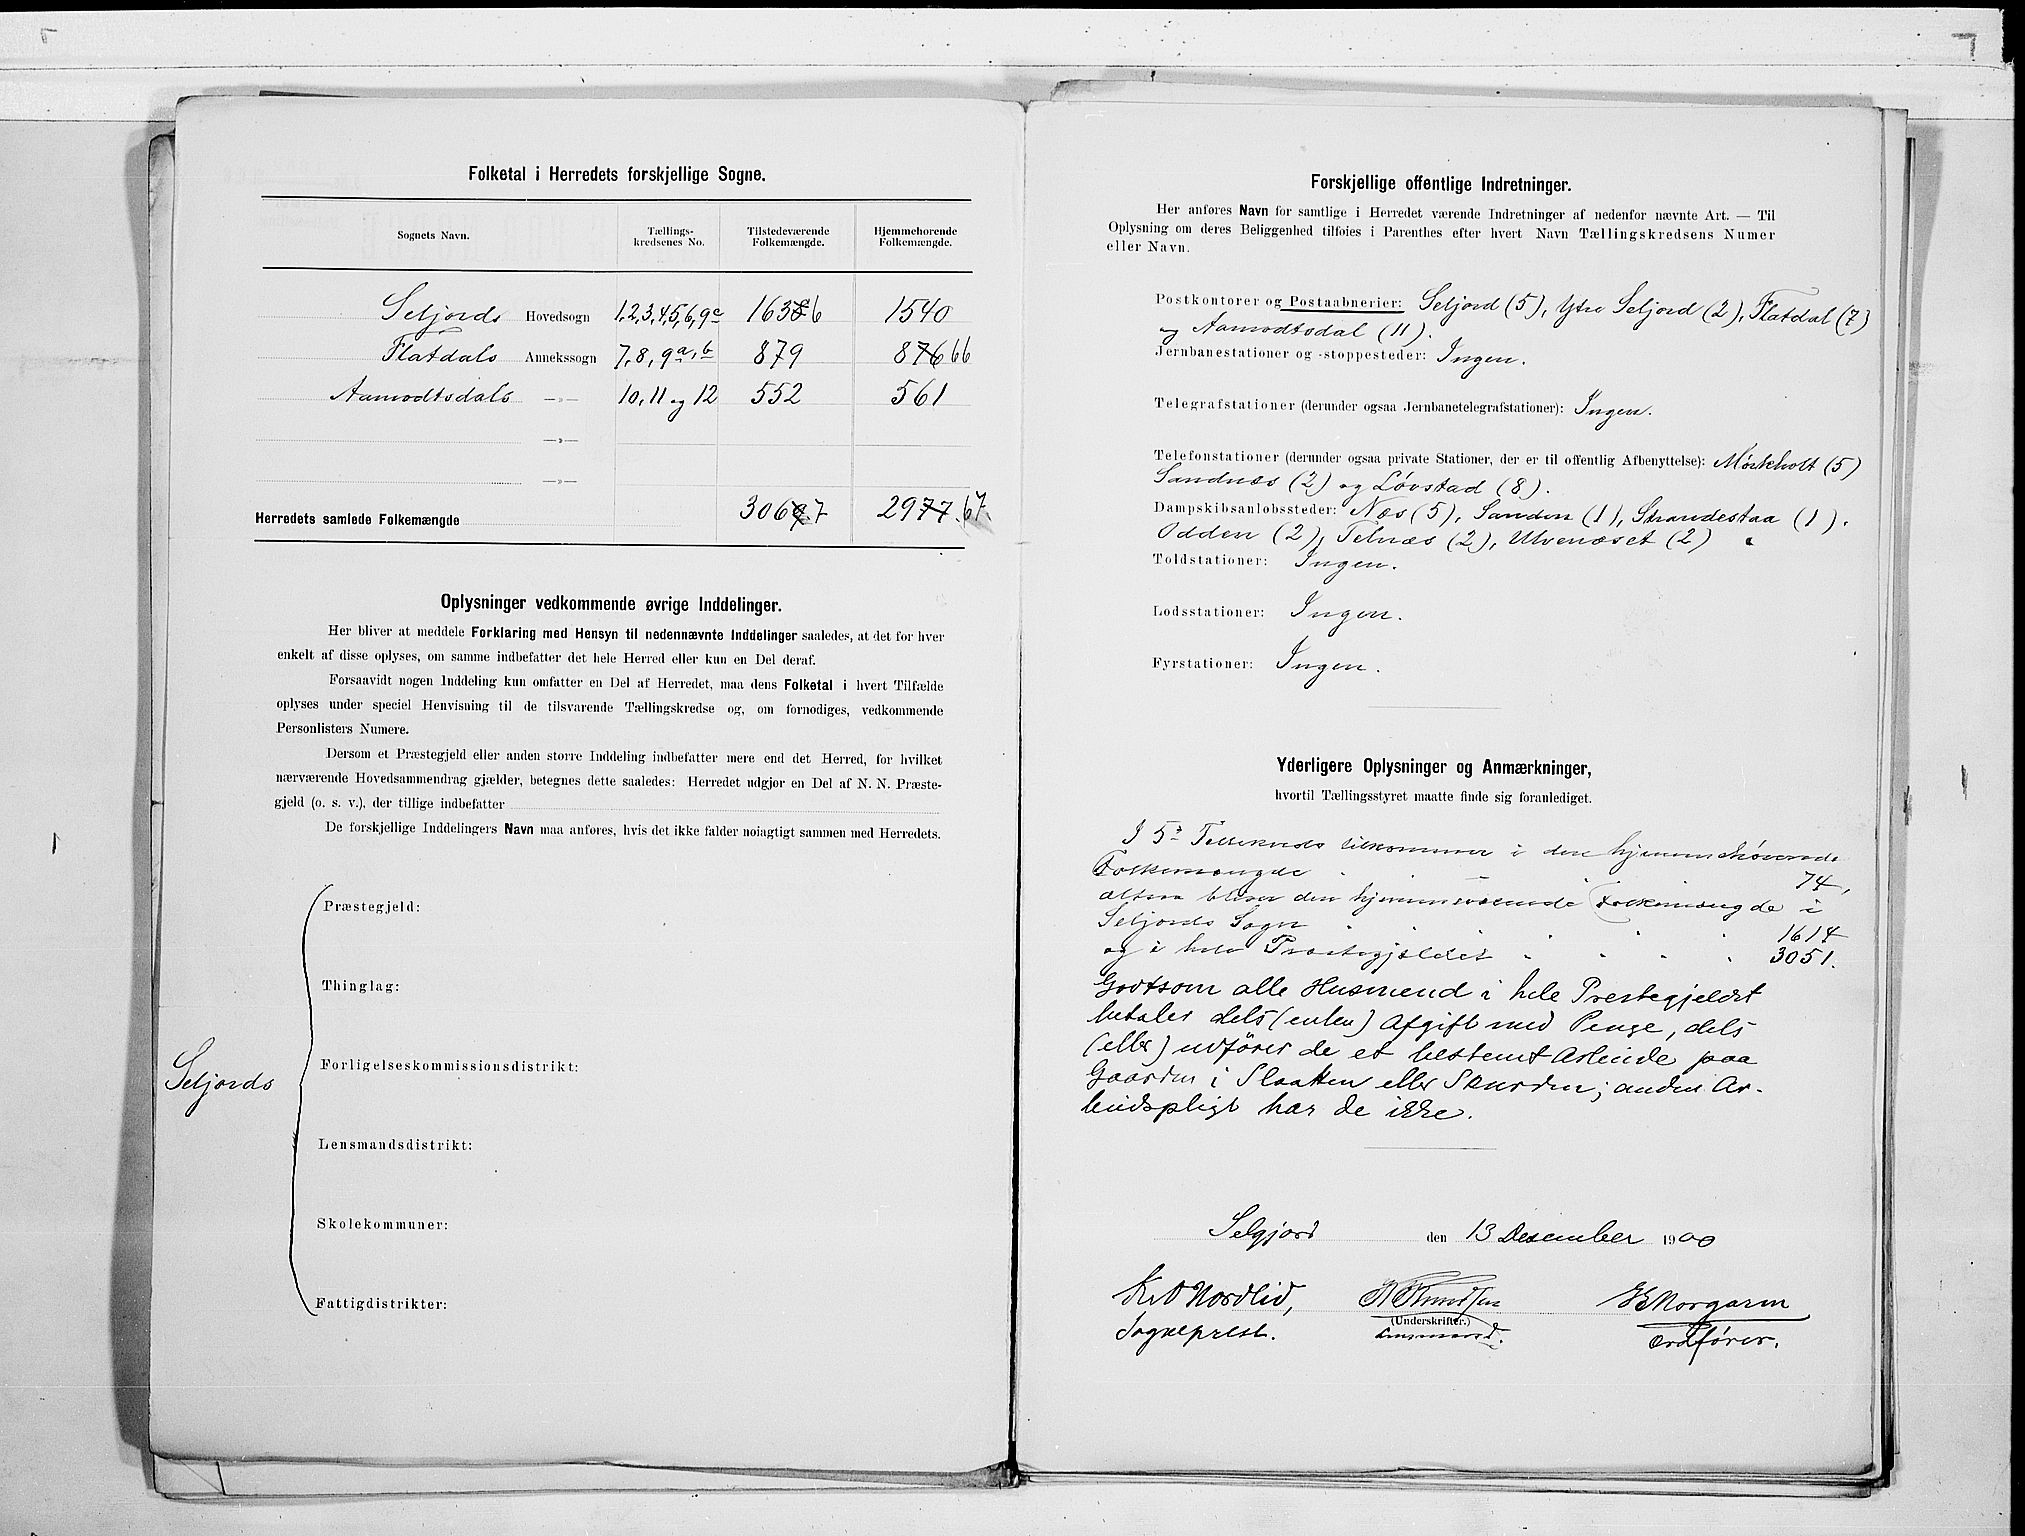 Folketal i Herredets forskjellige Sogne.
Sognets Navn. Tællings-kredsenes No. Tilstedeværende Folkemængde. Hjemmehørende Folkemængde.
Seljords Hovedsogn 1,2,3,4,5,6,9c 1636 1540
Flatdals Annekssogn 7,8,9a,b 879 87666
Aamodtsdals —„— 10, 11 og 12 552 561
—„—
—„—
Herredets samlede Folkemængde 3067 2977.67.
Oplysninger vedkommende øvrige Inddelinger.
Her bliver at meddele Forklaring med Hensyn til nedennævnte Inddelinger saaledes, at det for hver
enkelt af disse oplyses, om samme indbefatter det hele Herred eller kun en Del deraf.
Forsaavidt nogen Inddeling kun omfatter en Del af Herredet, maa dens Folketal i hvert Tilfælde
oplyses under speciel Henvisning til de tilsvarende Tællingskredse og, om fornødiges, vedkommende
Personlisters Numere.
Dersom et Præstegjeld eller anden større Inddeling indbefatter mere end det Herred, for hvilket
nærværende Hovedsammendrag gjælder, betegnes dette saaledes: Herredet udgjør en Del af N. N. Præste-
gjeld (o. s. v.), der tillige indbefatter
De forskjellige Inddelingers Navn maa anføres, hvis det ikke falder nøiagtigt sammen med Herredets.
Præstegjeld:
Thinglag:
Forligelseskommissionsdistrikt:
Seljords
Lensmandsdistrikt:
Skolekommuner:
Fattigdistrikter:
Forskjellige offentlige Indretninger.
Her anføres Navn for samtlige i Herredet værende Indretninger af nedenfor nævnte Art. — Til
Oplysning om deres Beliggenhed tilføies i Parenthes efter hvert Navn Tællingskredsens Numer
eller Navn.
Postkontorer og Postaabnerier: Seljord (5), Ytre Seljord (2), Flatdal (7)
og Aamodtsdal (11).
Jernbanestationer og -stoppesteder: Ingen.
Telegrafstationer (derunder ogsaa Jernbanetelegrafstationer): Ingen.
Telefonstationer (derunder ogsaa private Stationer, der er til offentlig Afbenyttelse): Mørkholt (5)
Sandnæs (2) og Løvstad (8).
Dampskibsanløbssteder: Næs (5), Sanden (1), Strandestaa (1).
Odden (2), Telnæs (2), Ulvenæset (2)
Toldstationer: Ingen.
Lodsstationer: Ingen.
Fyrstationer: Ingen.
Yderligere Oplysninger og Anmærkninger,
hvortil Tællingsstyret maatte finde sig foranlediget.
I 5te Tællekreds tilkommer i den hjemmehørende
Folkemængde 74,
altsaa bliver den hjemmeværende Folkemængde i
Seljords Sogn 1614
og i hele Præstegjeldet 3051.
Godtsom alle Husmænd i hele Prestegjeldet
betaler dels (enten) Afgift med Penge, dels
(eller) udfører de et bestemt Arbeide paa
Gaarden i Slaatten eller Skurden; anden Ar-
beidspligt har de ikke.
Selgjord den 13 Desember 1900
K.O Nordlid, Knudsen Morgarm
(Underskrifter.)
Sogneprest. Lensmand. Ordfører.